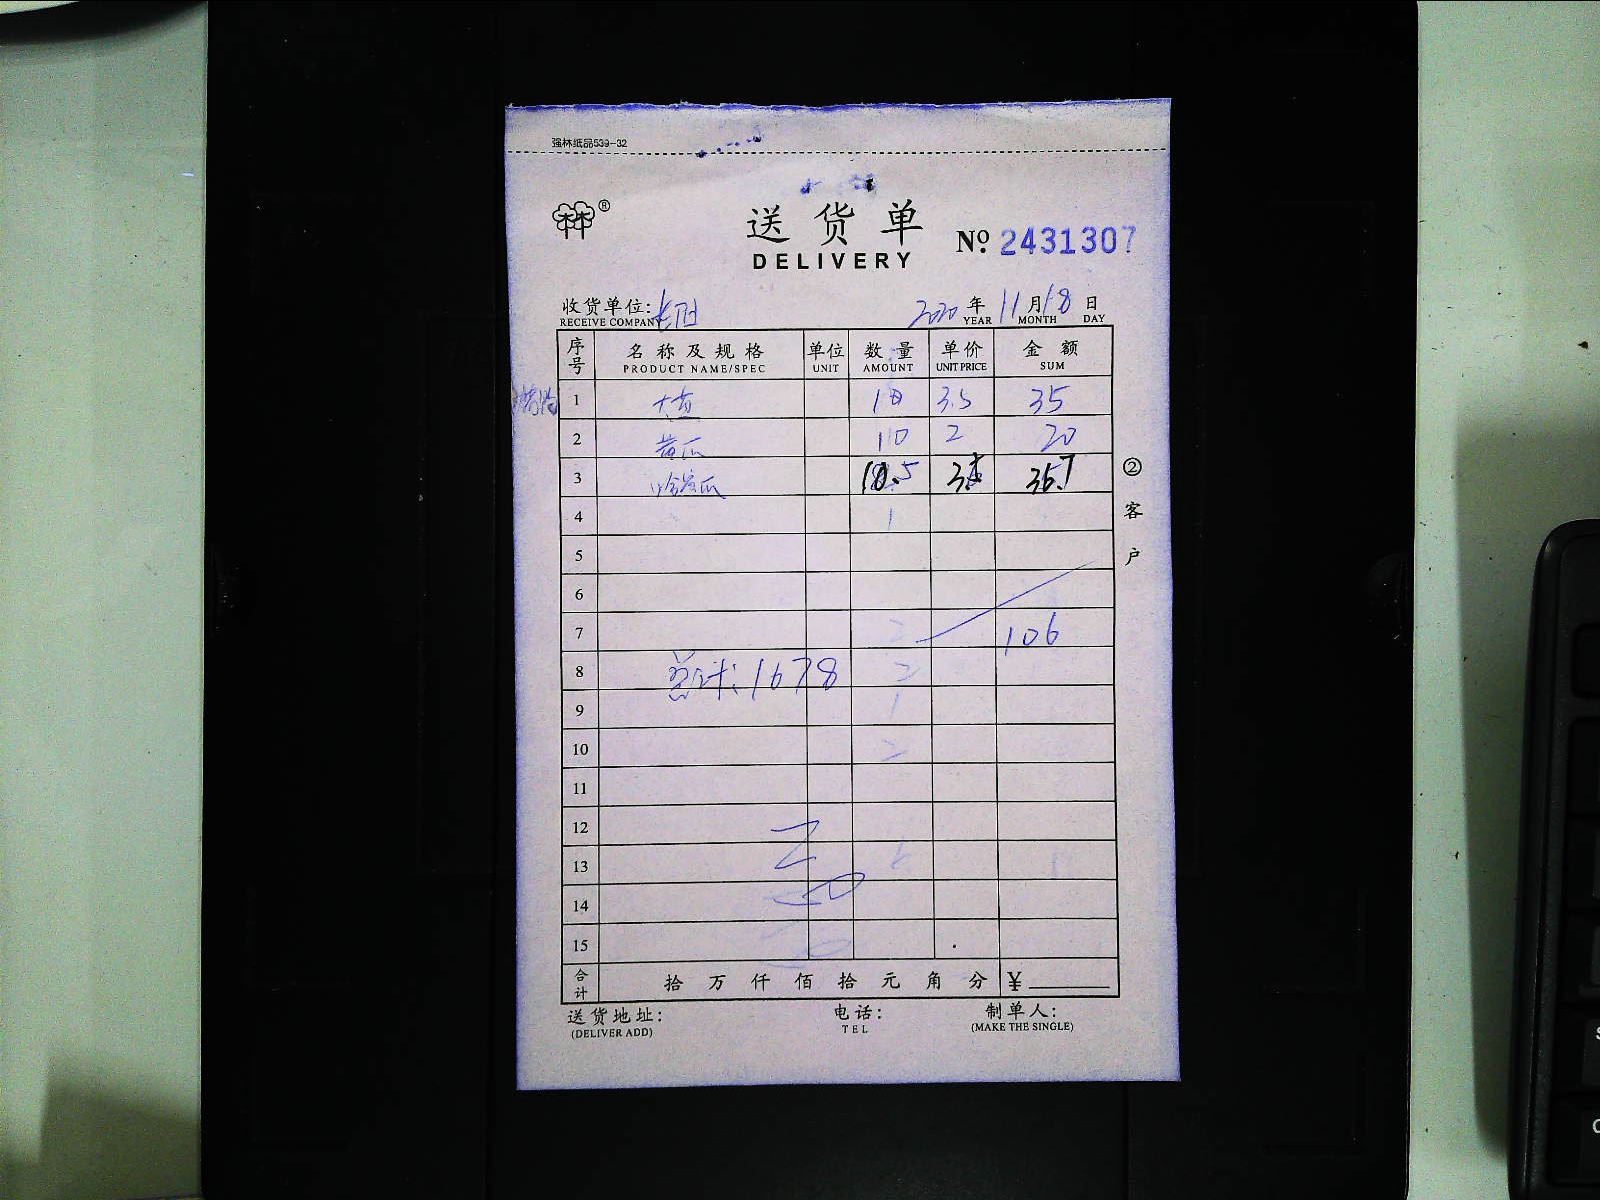 强林纸品539-32
林林®
送货单
DELIVERY
№ 2431307
收货单位:
RECEIVE COMPANY
2020年11月18日
YEAR MONTH DAY
序号 名称及规格 单位 数量 单价 金额
PRODUCT NAME/SPEC UNIT AMOUNT UNIT PRICE SUM
1 10 3.5 35
2 黄瓜 10 2 20
3 10.5 3.4 35.7
4
5
6
7 106
8 总计:1678
9
10
11
12
13
14
15
合计 拾万仟佰拾元角分 ¥
送货地址: 电话: 制单人:
(DELIVER ADD) TEL (MAKE THE SINGLE)
②客户